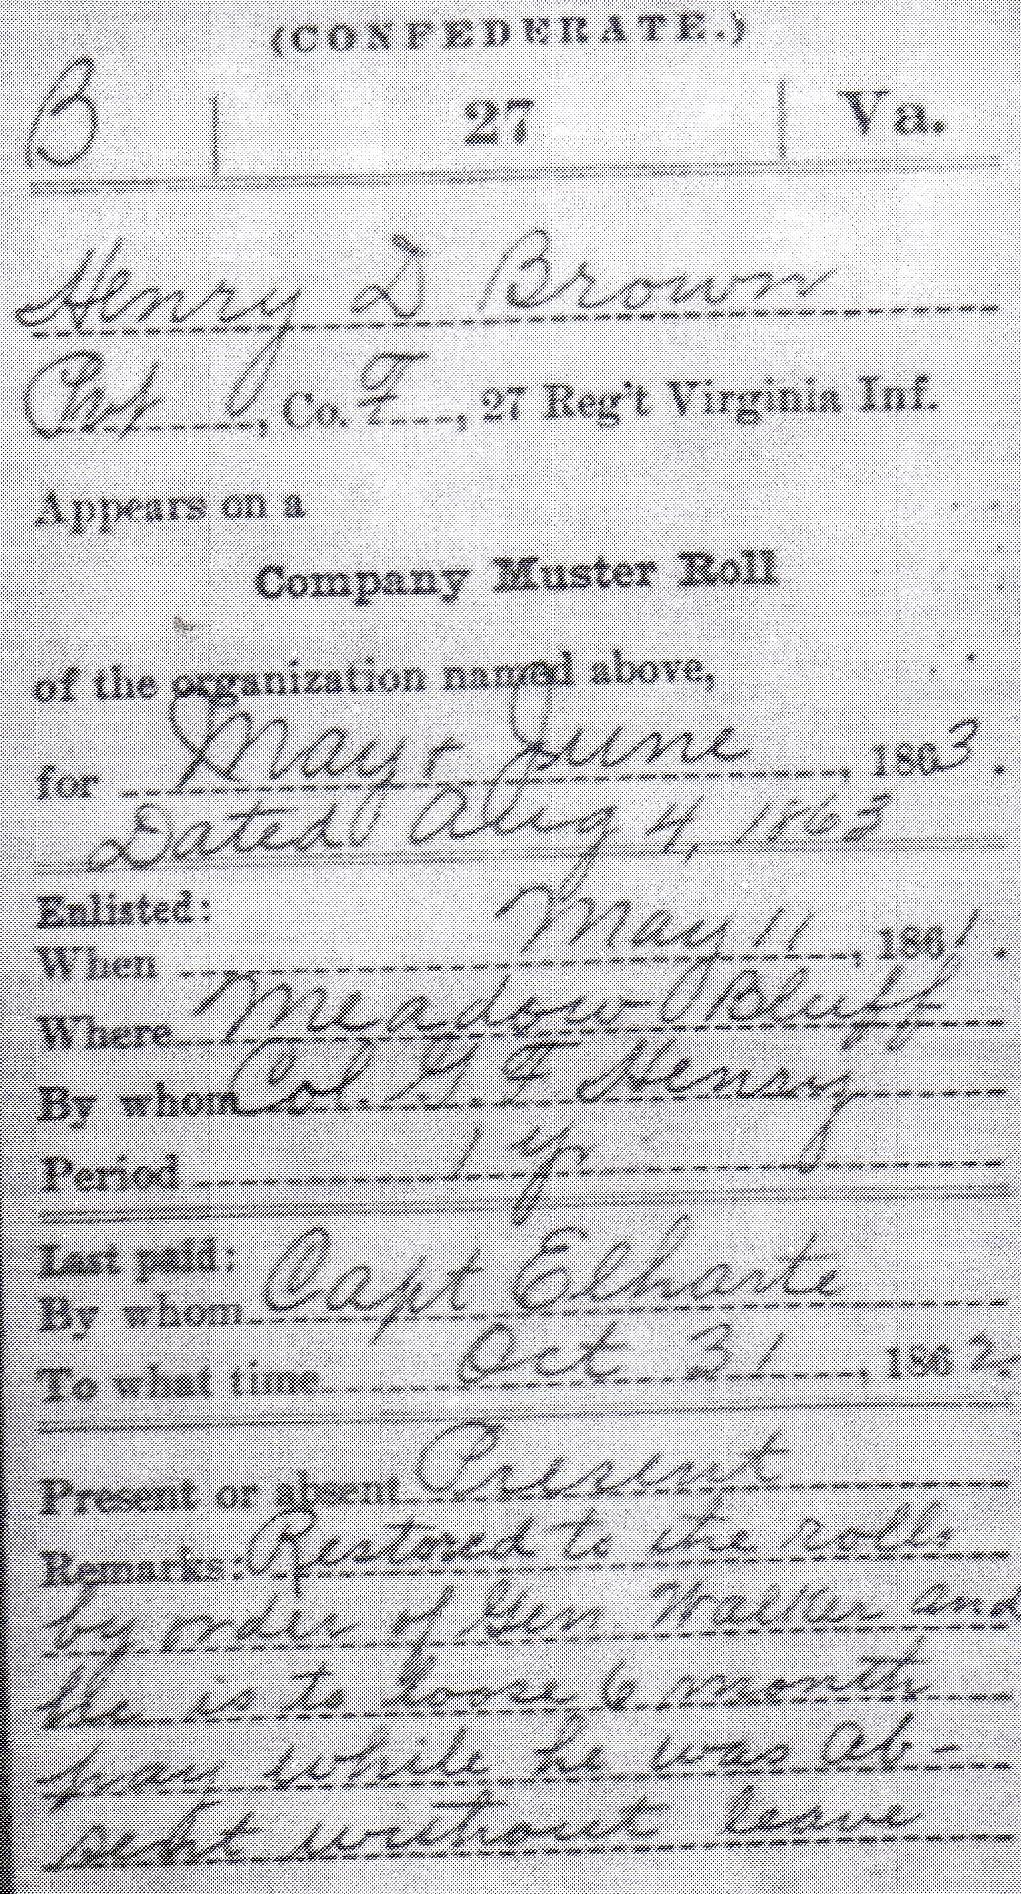 (CONFEDERATE.)
B 27 Va.
Henry D Brown
Pvt, Co. F, 27 Reg't Virginia Inf.
Appears on a
Company Muster Roll
of the organization named above,
for May & June, 1863.
Dated Aug 4, 1863
Enlisted:
When May 11, 1861.
Where Meadow Bluff
By whom Col. F Henry
Period 1 yr
Last paid:
By whom Capt Elharte
To what time Oct 31, 1862.
Present or absent Present
Remarks: Restored to the rolls
by order of Gen Walker and
he is to loose 6 month
pay while he was ab-
sent without leave